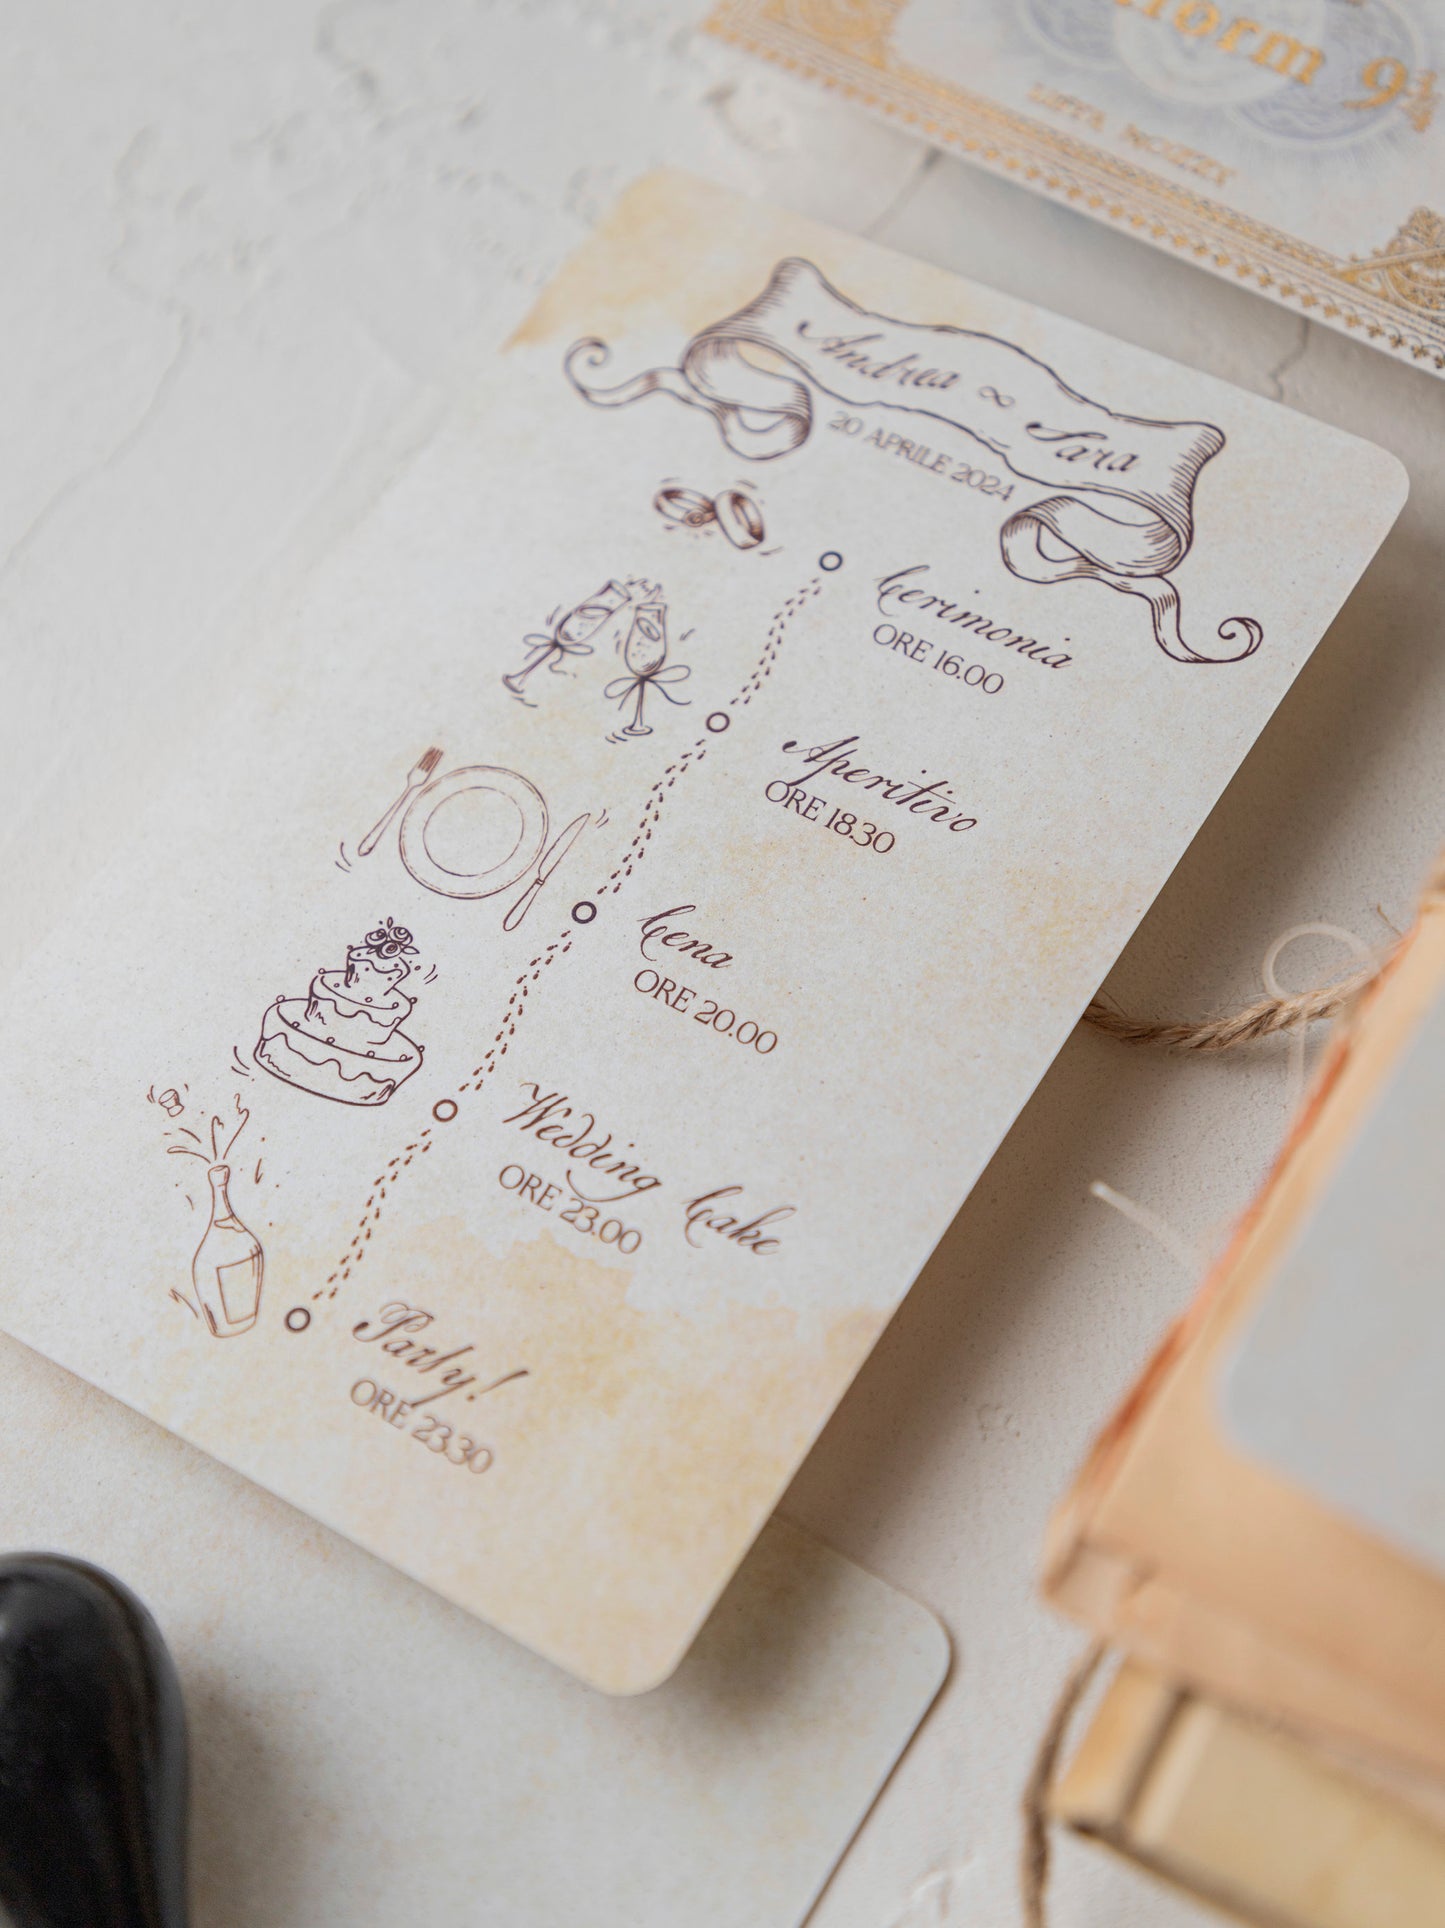 9 ¾
Andrea ∞ Sara
20 APRILE 2024
Cerimonia
ORE 16.00
Aperitivo
ORE 18.30
Cena
ORE 20.00
Wedding Cake
ORE 23.00
Party!
ORE 23.30